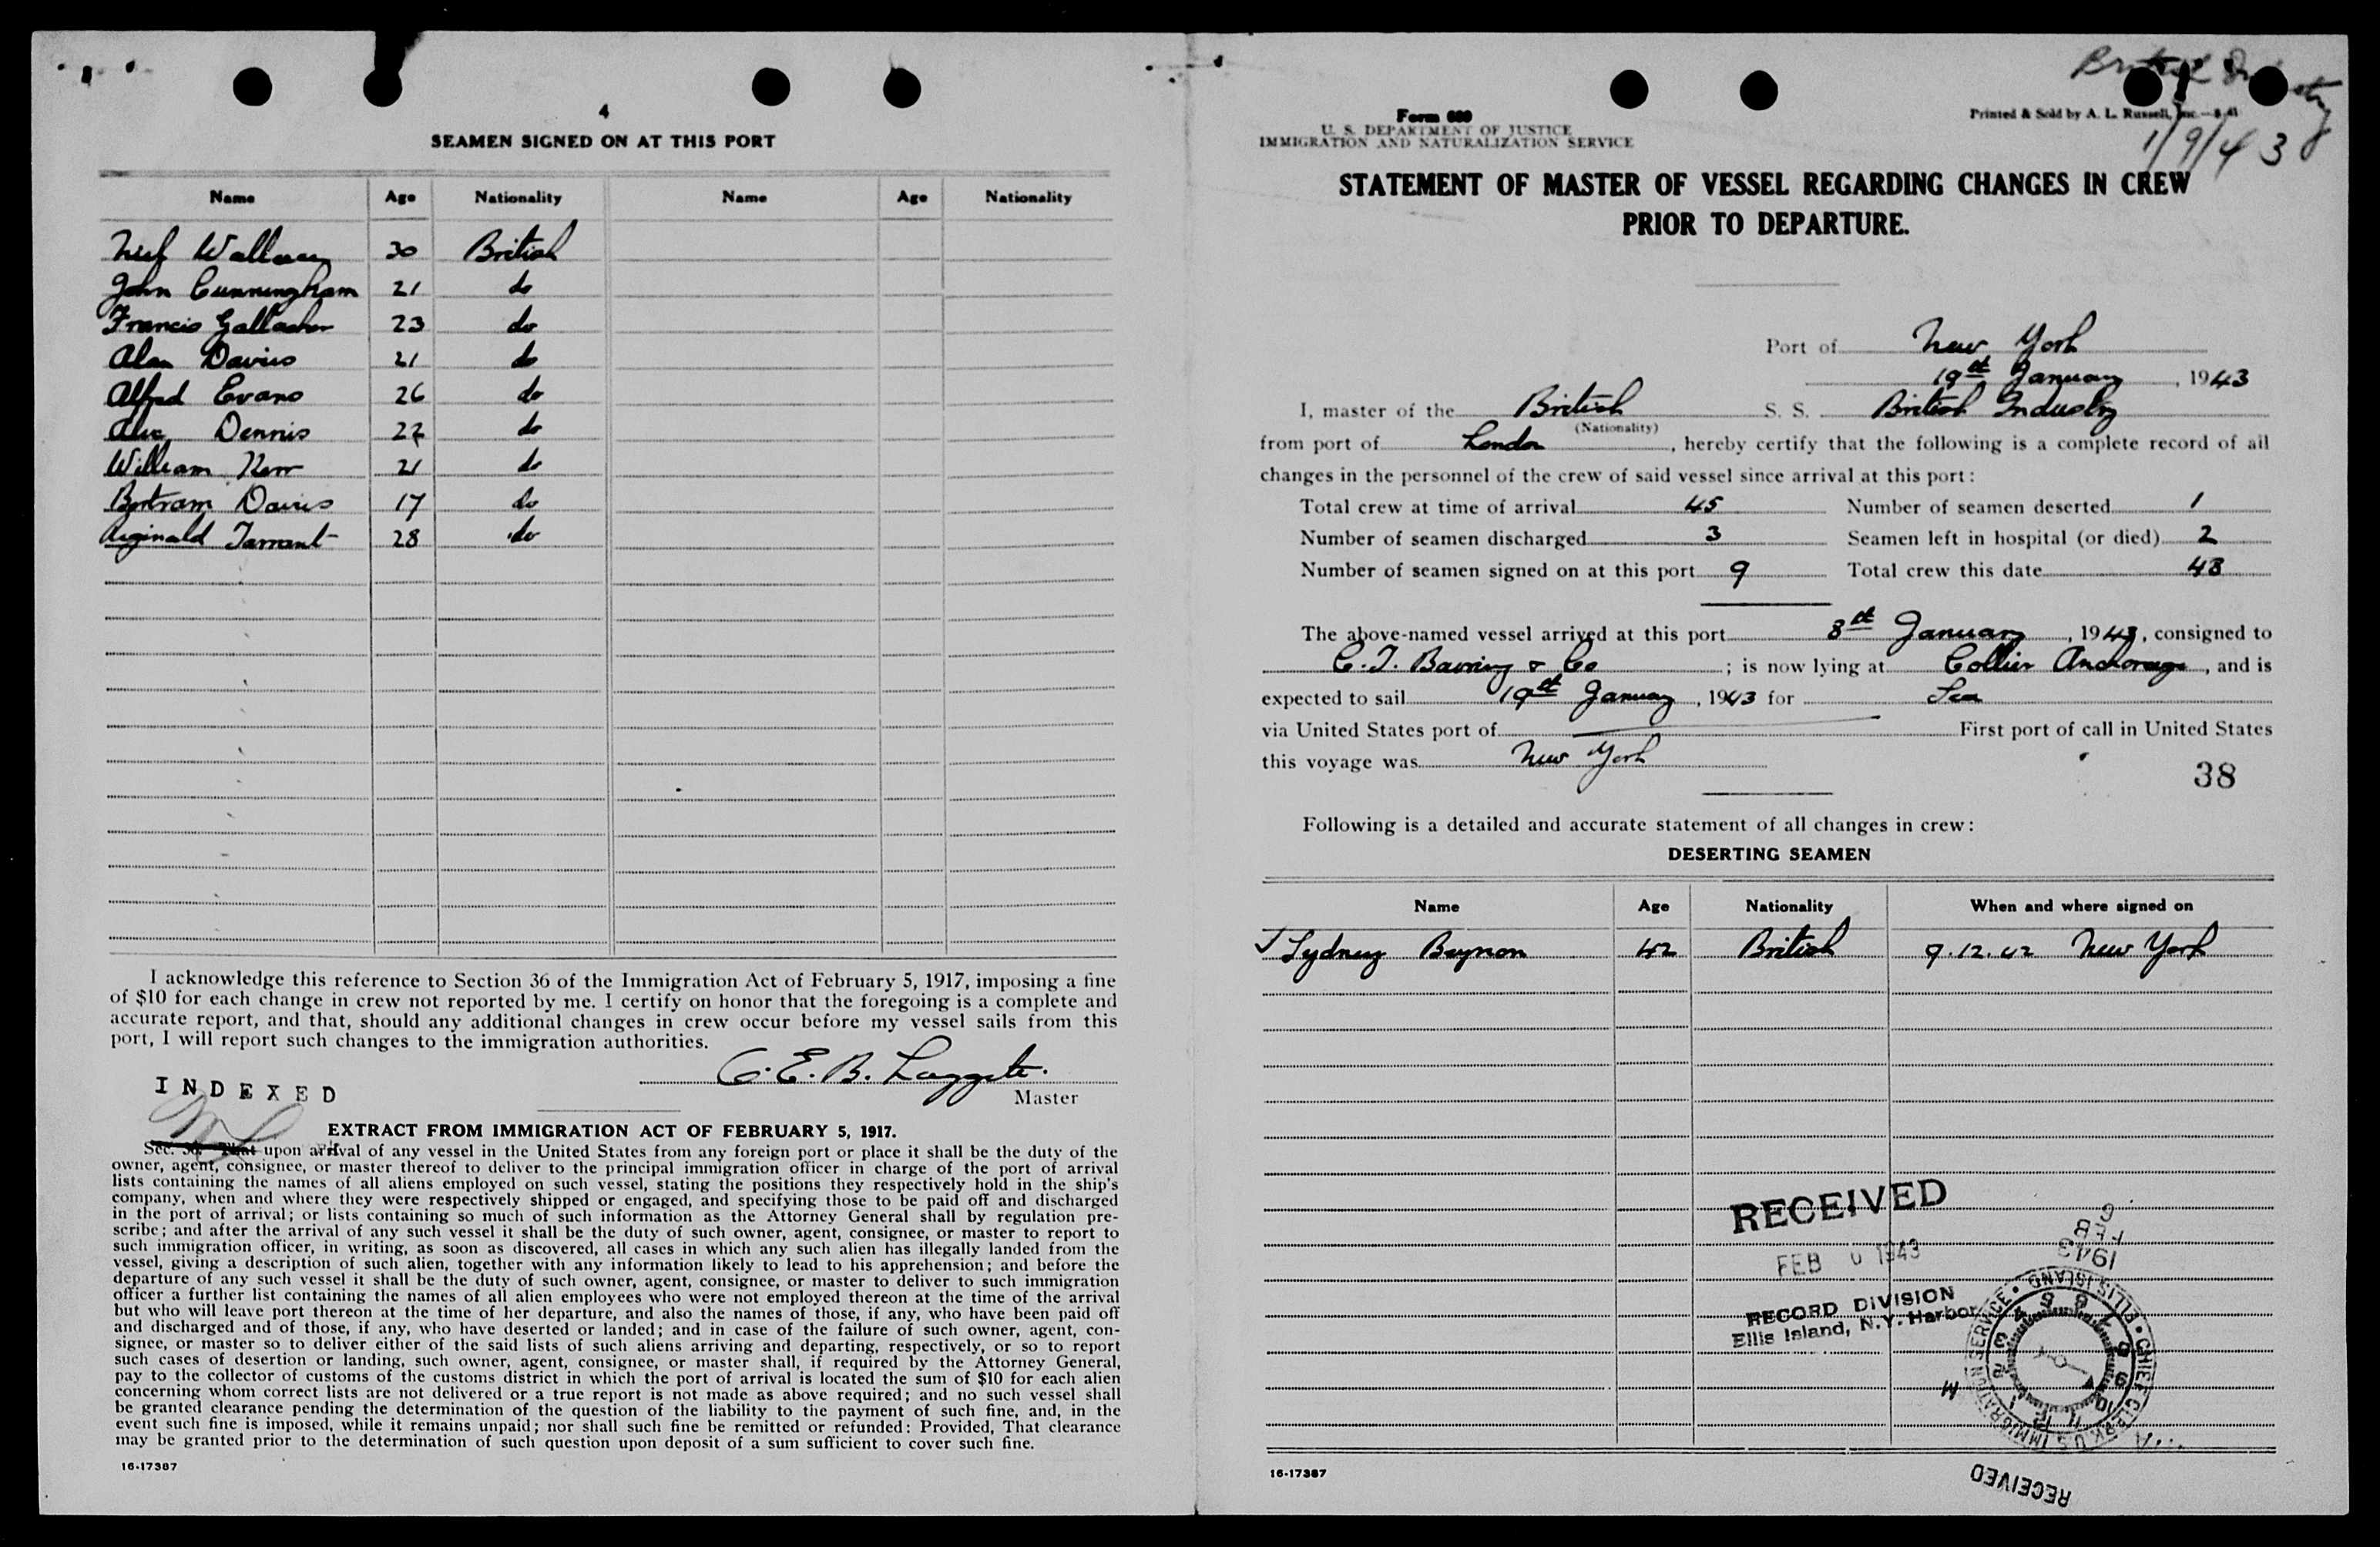 4
SEAMEN SIGNED ON AT THIS PORT
Name Age Nationality Name Age Nationality
Wallace 30 British
John Cunningham 21 do
Francis Gallagher 23 do
Alan Davies 21 do
Alfred Evans 26 do
Alec Dennis 22 do
William Kerr 21 do
Bertram Davies 17 do
Reginald Tarrant 28 do
I acknowledge this reference to Section 36 of the Immigration Act of February 5, 1917, imposing a fine
of $10 for each change in crew not reported by me. I certify on honor that the foregoing is a complete and
accurate report, and that, should any additional changes in crew occur before my vessel sails from this
port, I will report such changes to the immigration authorities.
C. E. B. Laggate.
Master
INDEXED
EXTRACT FROM IMMIGRATION ACT OF FEBRUARY 5, 1917.
Sec. 36. That upon arrival of any vessel in the United States from any foreign port or place it shall be the duty of the
owner, agent, consignee, or master thereof to deliver to the principal immigration officer in charge of the port of arrival
lists containing the names of all aliens employed on such vessel, stating the positions they respectively hold in the ship's
company, when and where they were respectively shipped or engaged, and specifying those to be paid off and discharged
in the port of arrival; or lists containing so much of such information as the Attorney General shall by regulation pre-
scribe; and after the arrival of any such vessel it shall be the duty of such owner, agent, consignee, or master to report to
such immigration officer, in writing, as soon as discovered, all cases in which any such alien has illegally landed from the
vessel, giving a description of such alien, together with any information likely to lead to his apprehension; and before the
departure of any such vessel it shall be the duty of such owner, agent, consignee, or master to deliver to such immigration
officer a further list containing the names of all alien employees who were not employed thereon at the time of the arrival
but who will leave port thereon at the time of her departure, and also the names of those, if any, who have been paid off
and discharged and of those, if any, who have deserted or landed; and in case of the failure of such owner, agent, con-
signee, or master so to deliver either of the said lists of such aliens arriving and departing, respectively, or so to report
such cases of desertion or landing, such owner, agent, consignee, or master shall, if required by the Attorney General,
pay to the collector of customs of the customs district in which the port of arrival is located the sum of $10 for each alien
concerning whom correct lists are not delivered or a true report is not made as above required; and no such vessel shall
be granted clearance pending the determination of the question of the liability to the payment of such fine, and, in the
event such fine is imposed, while it remains unpaid; nor shall such fine be remitted or refunded: Provided, That clearance
may be granted prior to the determination of such question upon deposit of a sum sufficient to cover such fine.
16-17387
British Industry
1/9/43
Form 680
U. S. DEPARTMENT OF JUSTICE
IMMIGRATION AND NATURALIZATION SERVICE
Printed & Sold by A. L. Russell, Inc.—8-41
STATEMENT OF MASTER OF VESSEL REGARDING CHANGES IN CREW
PRIOR TO DEPARTURE.
Port of New York
19th January, 1943
I, master of the British S. S. British Industry
(Nationality)
from port of London, hereby certify that the following is a complete record of all
changes in the personnel of the crew of said vessel since arrival at this port:
Total crew at time of arrival 45 Number of seamen deserted 1
Number of seamen discharged 3 Seamen left in hospital (or died) 2
Number of seamen signed on at this port 9 Total crew this date 48
The above-named vessel arrived at this port 8th January, 1943, consigned to
C. T. Bowring & Co; is now lying at Collier Anchorage, and is
expected to sail 19th January, 1943 for Sea
via United States port of First port of call in United States
this voyage was New York
38
Following is a detailed and accurate statement of all changes in crew:
DESERTING SEAMEN
Name Age Nationality When and where signed on
Sydney Beynon 42 British 9.12.42 New York
RECEIVED
FEB 6 1943
RECORD DIVISION
Ellis Island, N.Y. Harbor
FEB 6
1943
IMMIGRATION SERVICE • ELLIS ISLAND • CHIEF CLERK U.S.
RECEIVED
16-17387